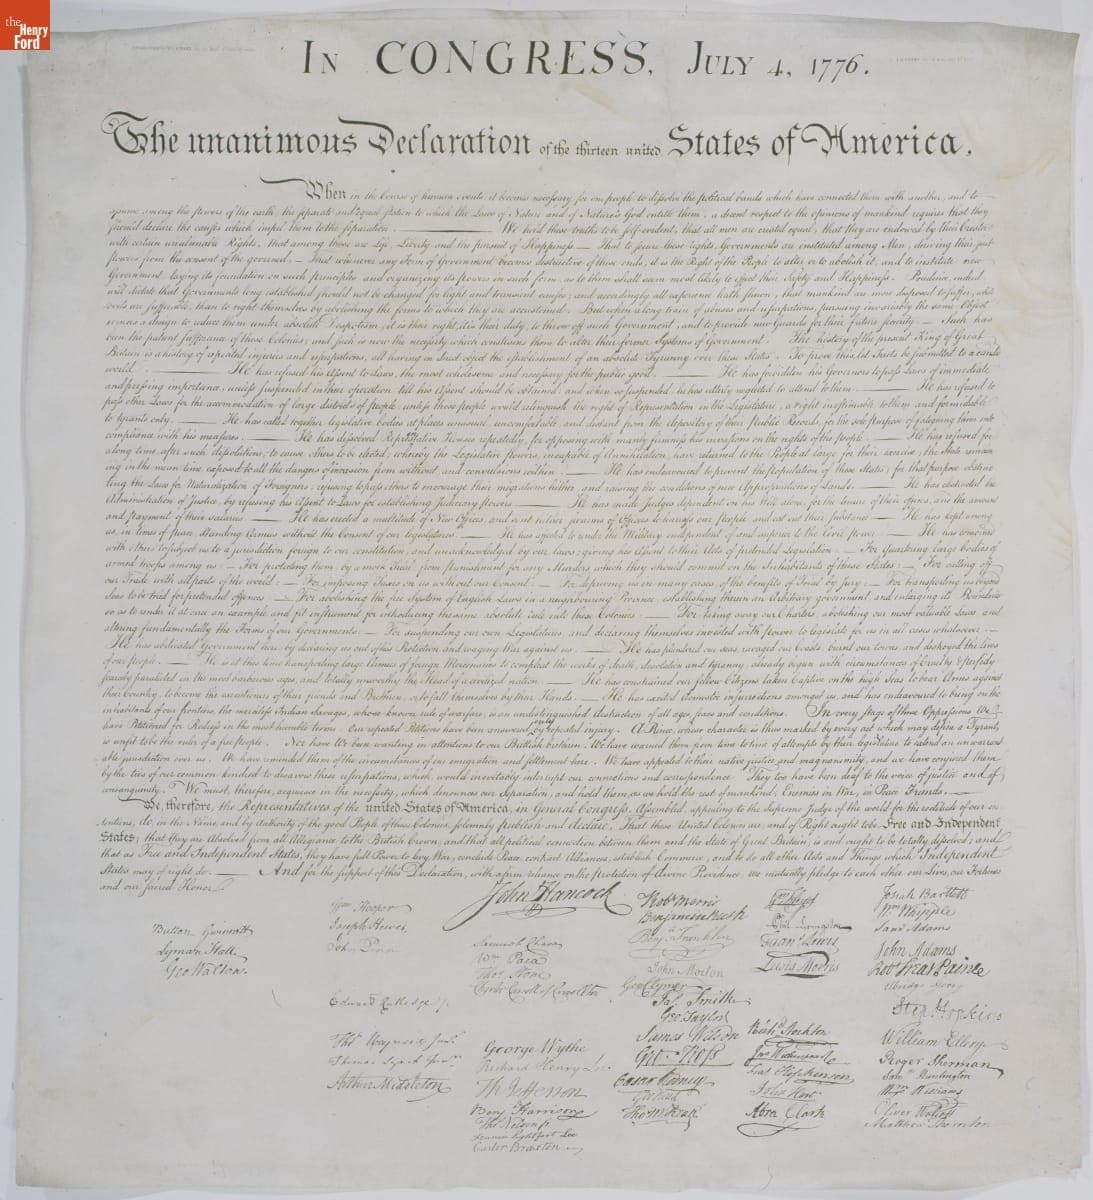 the Henry Ford
IN CONGRESS, JULY 4, 1776.
The unanimous Declaration of the thirteen united States of America.
When in the Course of human events it becomes necessary for one people to dissolve the political bands which have connected them with another, and to
assume among the powers of the earth, the separate and equal station to which the Laws of Nature and of Nature's God entitle them, a decent respect to the opinions of mankind requires that they
should declare the causes which impel them to the separation. — We hold these truths to be self-evident, that all men are created equal, that they are endowed by their Creator
with certain unalienable Rights, that among these are Life, Liberty and the pursuit of Happiness. — That to secure these rights, Governments are instituted among Men, deriving their just
powers from the consent of the governed, — That whenever any Form of Government becomes destructive of these ends, it is the Right of the People to alter or to abolish it, and to institute new
Government, laying its foundation on such principles and organizing its powers in such form, as to them shall seem most likely to effect their Safety and Happiness. Prudence, indeed,
will dictate that Governments long established should not be changed for light and transient causes; and accordingly all experience hath shewn, that mankind are more disposed to suffer, while
evils are sufferable, than to right themselves by abolishing the forms to which they are accustomed. But when a long train of abuses and usurpations, pursuing invariably the same Object
evinces a design to reduce them under absolute Despotism, it is their right, it is their duty, to throw off such Government, and to provide new Guards for their future security. — Such has
been the patient sufferance of these Colonies; and such is now the necessity which constrains them to alter their former Systems of Government. The history of the present King of Great
Britain is a history of repeated injuries and usurpations, all having in direct object the establishment of an absolute Tyranny over these States. To prove this, let Facts be submitted to a candid
world. — He has refused his Assent to Laws, the most wholesome and necessary for the public good. — He has forbidden his Governors to pass Laws of immediate
and pressing importance, unless suspended in their operation till his Assent should be obtained; and when so suspended, he has utterly neglected to attend to them. — He has refused to
pass other Laws for the accommodation of large districts of people, unless those people would relinquish the right of Representation in the Legislature, a right inestimable to them and formidable
to tyrants only. — He has called together legislative bodies at places unusual, uncomfortable, and distant from the depository of their Public Records, for the sole purpose of fatiguing them into
compliance with his measures. — He has dissolved Representative Houses repeatedly, for opposing with manly firmness his invasions on the rights of the people. — He has refused for
a long time, after such dissolutions, to cause others to be elected; whereby the Legislative powers, incapable of Annihilation, have returned to the People at large for their exercise; the State remain
ing in the mean time exposed to all the dangers of invasion from without, and convulsions within. — He has endeavoured to prevent the population of these States; for that purpose obstruc
ting the Laws for Naturalization of Foreigners; refusing to pass others to encourage their migrations hither, and raising the conditions of new Appropriations of Lands. — He has obstructed the
Administration of Justice, by refusing his Assent to Laws for establishing Judiciary powers. — He has made Judges dependent on his Will alone, for the tenure of their offices, and the amount
and payment of their salaries. — He has erected a multitude of New Offices, and sent hither swarms of Officers to harrass our People, and eat out their substance. — He has kept among
us, in times of peace, Standing Armies without the Consent of our legislatures. — He has affected to render the Military independent of and superior to the Civil power. — He has combined
with others to subject us to a jurisdiction foreign to our constitution, and unacknowledged by our laws; giving his Assent to their Acts of pretended Legislation: — For Quartering large bodies of
armed troops among us: — For protecting them, by a mock Trial, from punishment for any Murders which they should commit on the Inhabitants of these States: — For cutting off
our Trade with all parts of the world: — For imposing Taxes on us without our Consent: — For depriving us in many cases, of the benefits of Trial by Jury: — For transporting us beyond
Seas to be tried for pretended offences — For abolishing the free System of English Laws in a neighbouring Province, establishing therein an Arbitrary government, and enlarging its Boundaries
so as to render it at once an example and fit instrument for introducing the same absolute rule into these Colonies: — For taking away our Charters, abolishing our most valuable Laws, and
altering fundamentally the Forms of our Governments: — For suspending our own Legislatures, and declaring themselves invested with power to legislate for us in all cases whatsoever. —
He has abdicated Government here, by declaring us out of his Protection and waging War against us. — He has plundered our seas, ravaged our Coasts, burnt our towns, and destroyed the lives
of our people. — He is at this time transporting large Armies of foreign Mercenaries to compleat the works of death, desolation and tyranny, already begun with circumstances of Cruelty & perfidy
scarcely paralleled in the most barbarous ages, and totally unworthy the Head of a civilized nation. — He has constrained our fellow Citizens taken Captive on the high Seas to bear Arms against
their Country, to become the executioners of their friends and Brethren, or to fall themselves by their Hands. — He has excited domestic insurrections amongst us, and has endeavoured to bring on the
inhabitants of our frontiers, the merciless Indian Savages, whose known rule of warfare, is an undistinguished destruction of all ages, sexes and conditions. In every stage of these Oppressions We
have Petitioned for Redress in the most humble terms: Our repeated Petitions have been answered only by repeated injury. A Prince, whose character is thus marked by every act which may define a Tyrant,
is unfit to be the ruler of a free people. Nor have We been wanting in attentions to our Brittish brethren. We have warned them from time to time of attempts by their legislature to extend an unwarrant
able jurisdiction over us. We have reminded them of the circumstances of our emigration and settlement here. We have appealed to their native justice and magnanimity, and we have conjured them
by the ties of our common kindred to disavow these usurpations, which, would inevitably interrupt our connections and correspondence. They too have been deaf to the voice of justice and of
consanguinity. We must, therefore, acquiesce in the necessity, which denounces our Separation, and hold them, as we hold the rest of mankind, Enemies in War, in Peace Friends. —
We, therefore, the Representatives of the united States of America, in General Congress, Assembled, appealing to the Supreme Judge of the world for the rectitude of our in
tentions, do, in the Name, and by Authority of the good People of these Colonies, solemnly publish and declare, That these United Colonies are, and of Right ought to be Free and Independent
States; that they are Absolved from all Allegiance to the British Crown, and that all political connection between them and the State of Great Britain, is and ought to be totally dissolved; and
that as Free and Independent States, they have full Power to levy War, conclude Peace, contract Alliances, establish Commerce, and to do all other Acts and Things which Independent
States may of right do. — And for the support of this Declaration, with a firm reliance on the protection of divine Providence, we mutually pledge to each other our Lives, our Fortunes
and our sacred Honor.
Button Gwinnett
Lyman Hall
Geo Walton.
Wm Hooper
Joseph Hewes,
John Penn
Edward Rutledge /.
Thos Heyward Junr.
Thomas Lynch Junr.
Arthur Middleton
John Hancock
Samuel Chase
Wm Paca
Thos Stone
Charles Carroll of Carrollton
George Wythe
Richard Henry Lee
Th Jefferson
Benj Harrison
Thos Nelson jr.
Francis Lightfoot Lee
Carter Braxton
Robt Morris
Benjamin Rush
Benj. Franklin
John Morton
Geo Clymer
Jas. Smith
Geo. Taylor
James Wilson
Geo. Ross
Caesar Rodney
Geo Read
Tho M:Kean
Wm Floyd
Phil. Livingston
Frans. Lewis
Lewis Morris
Richd. Stockton
Jno Witherspoon
Fras. Hopkinson
John Hart
Abra Clark
Josiah Bartlett
Wm Whipple
Saml Adams
John Adams
Robt Treat Paine
Elbridge Gerry
Step. Hopkins
William Ellery
Roger Sherman
Saml Huntington
Wm Williams
Oliver Wolcott
Matthew Thornton